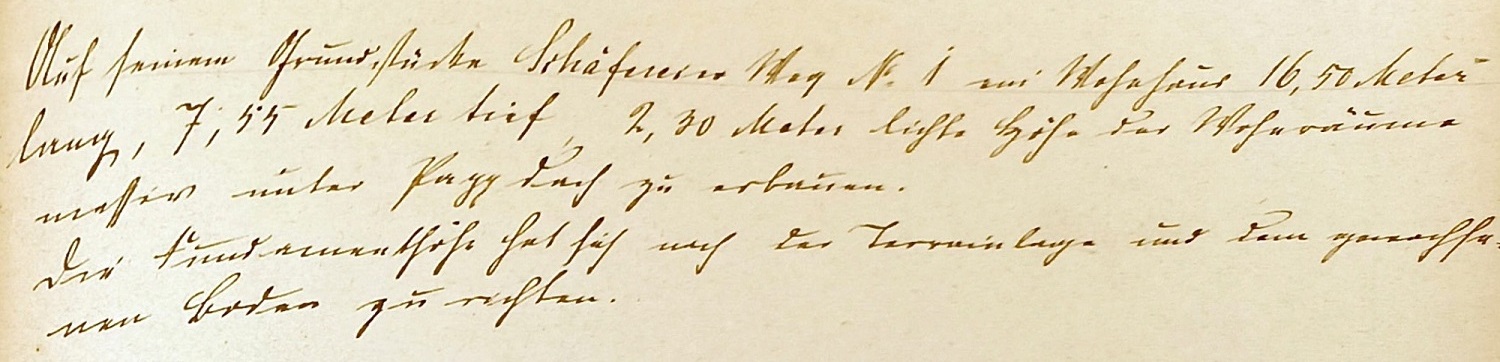 Auf seinem Grundstücke Schäferei Weg No. 1 ein Wohnhaus 16,50 Meter
lang, 7,55 Meter tief, 2,30 Meter lichte Höhe der Wohnräume
massiv unter Pappdach zu erbauen.
Die Fundamenthöhe hat sich nach der Terrainlage und dem gewachse-
nen Boden zu richten.